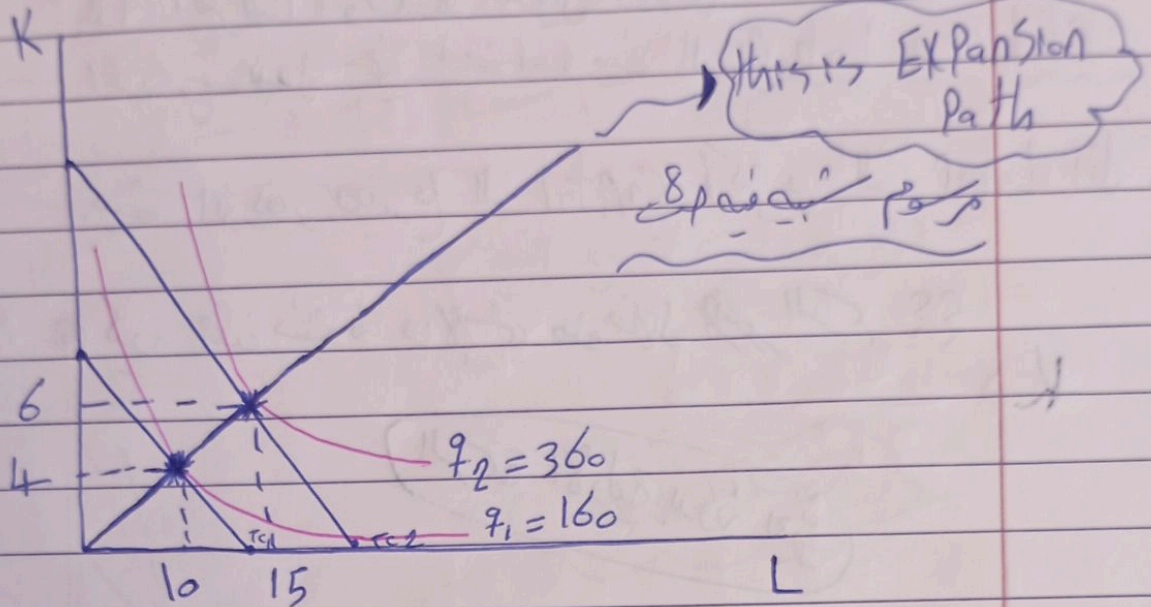 K
this is Expansion
Path
6
4
q₂ = 360
q₁ = 160
TC1
TC2
10
15
L